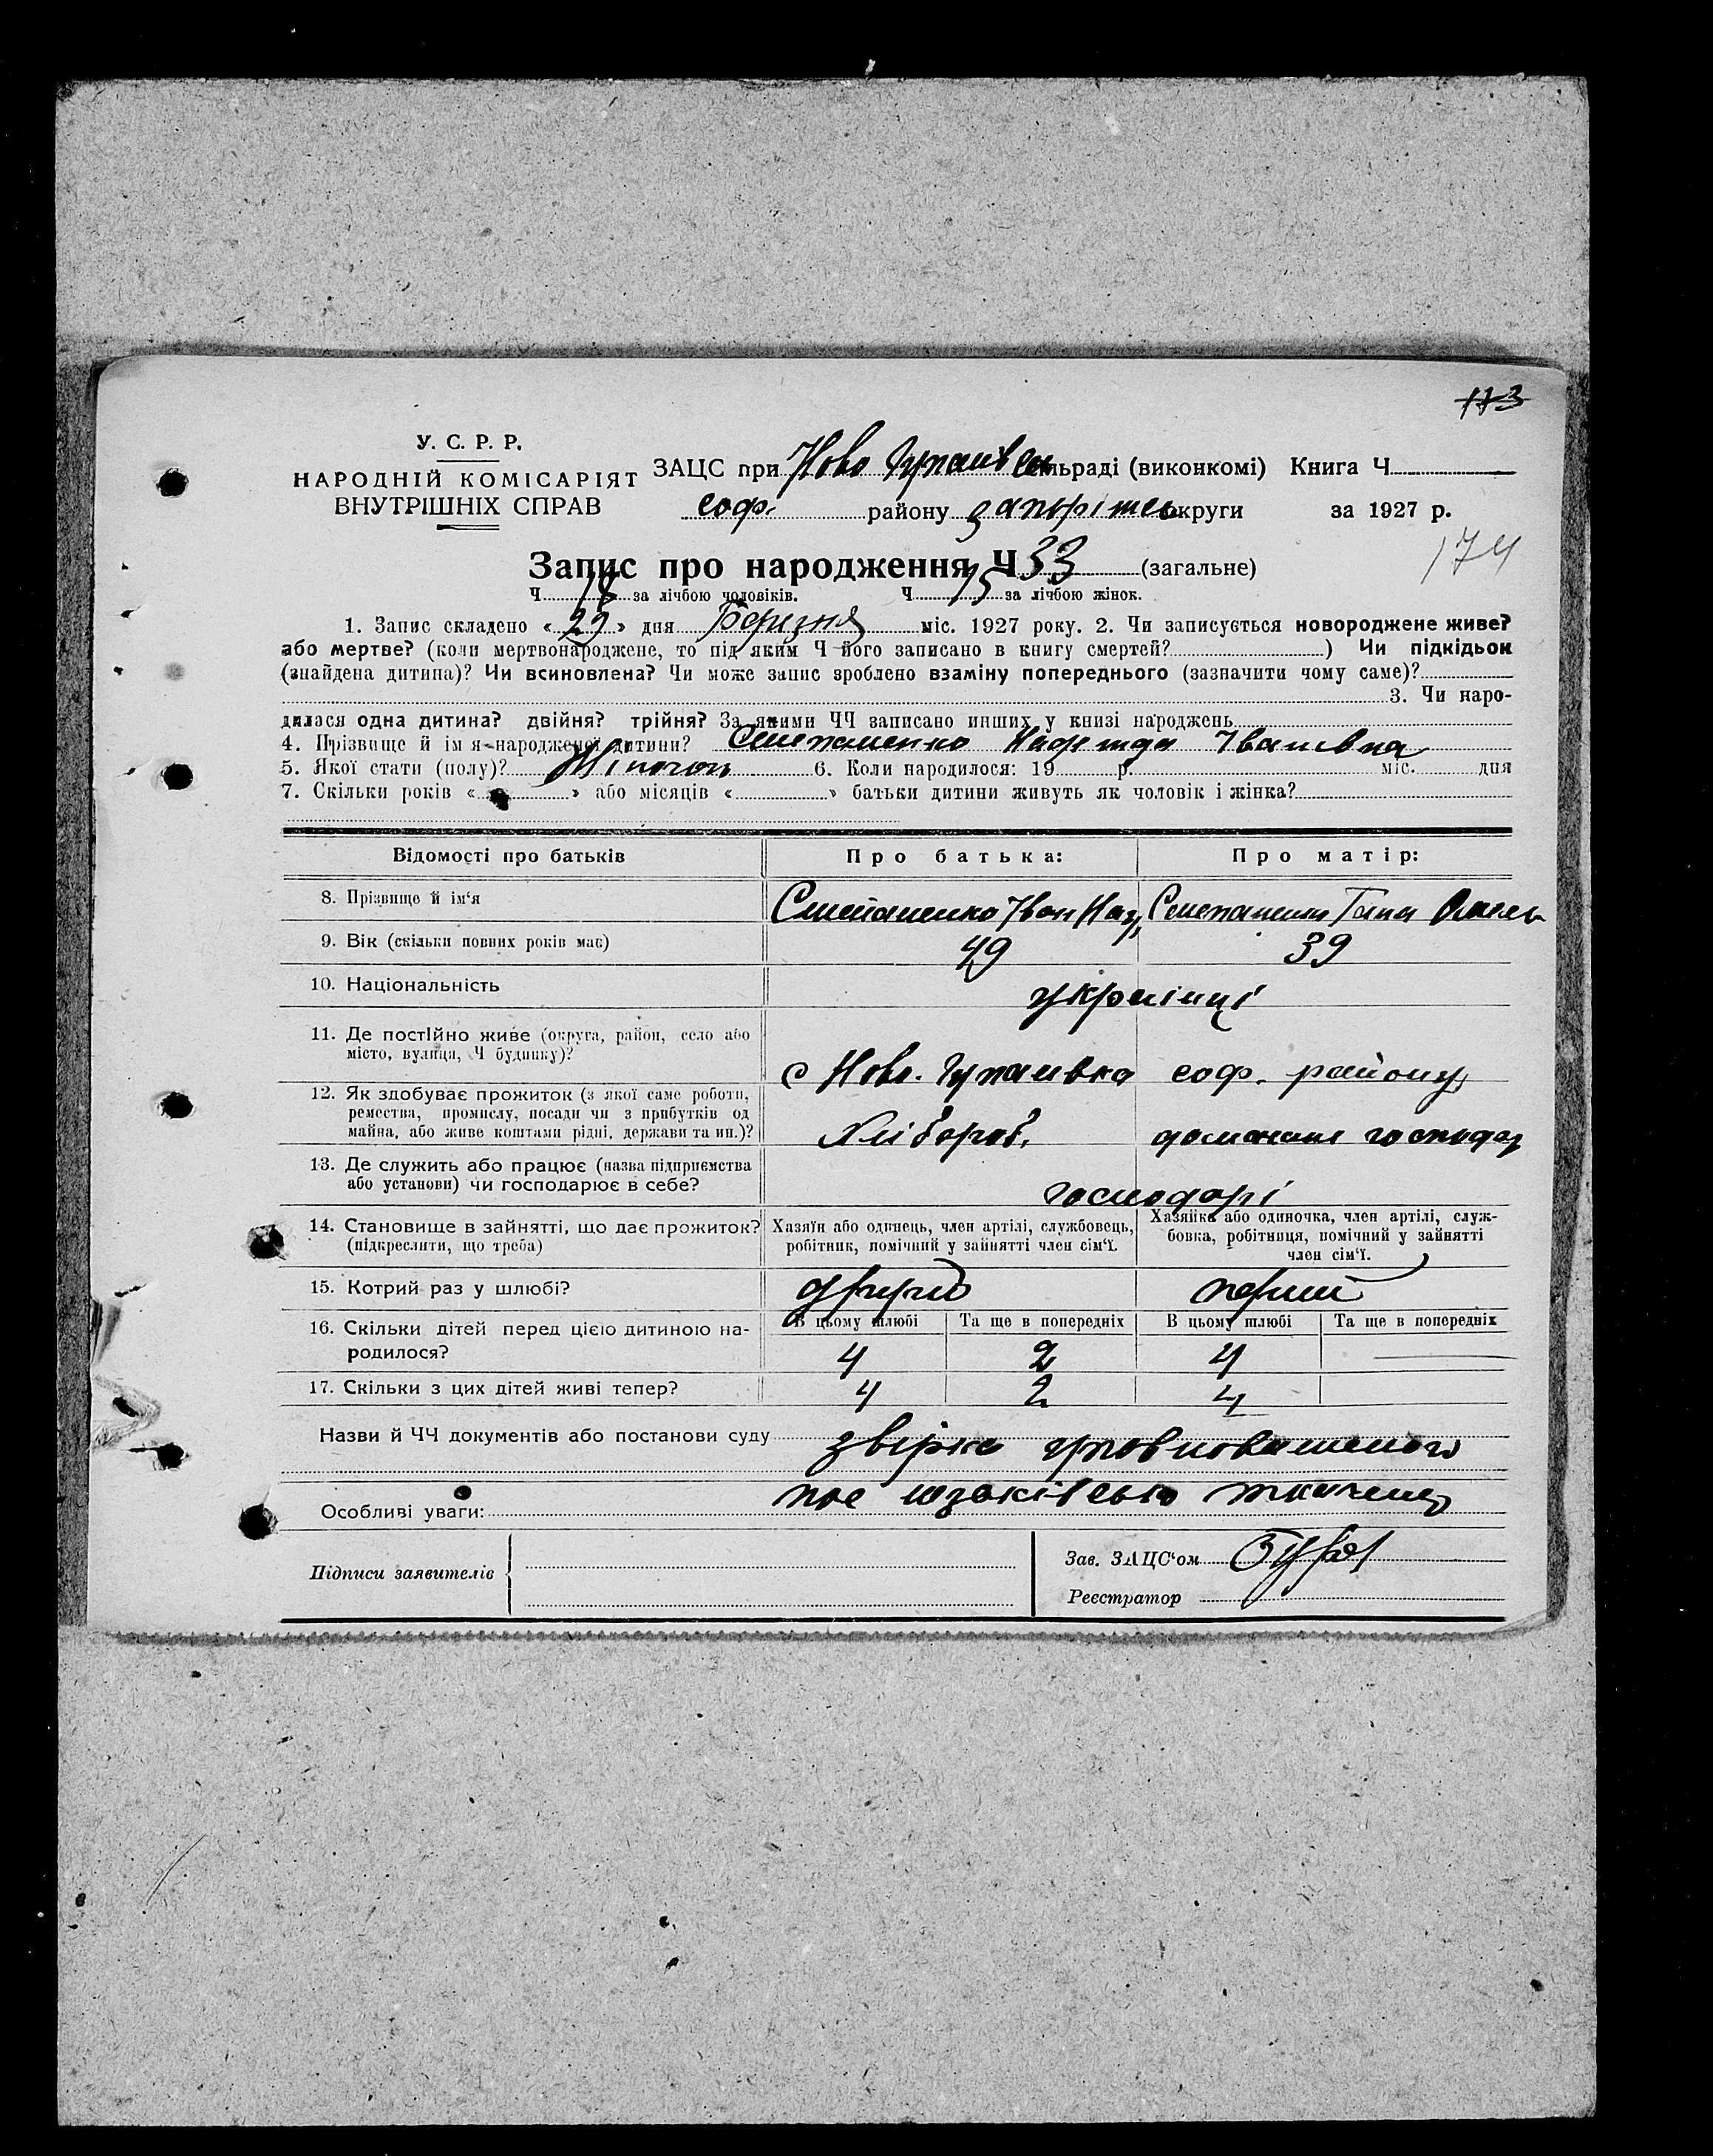 113
У. С. Р. Р.
НАРОДНІЙ КОМІСАРІЯТ
ВНУТРІШНІХ СПРАВ
ЗАЦС при Ново Гупалівсь сільраді (виконкомі) Книга Ч
соф. району Запоріжсь округи за 1927 р.
174
Запис про народження Ч 33 (загальне)
Ч 18 за лічбою чоловіків. Ч 15 за лічбою жінок.
1. Запис складено « 29 » дня Березня міс. 1927 року. 2. Чи записується новороджене живе?
або мертве? (коли мертвонароджене, то під яким Ч його записано в книгу смертей? ) Чи підкідьок
(знайдена дитина)? Чи всиновлена? Чи може запис зроблено взаміну попереднього (зазначити чому саме)?
3. Чи наро-
дилася одна дитина? двійня? трійня? За якими ЧЧ записано инших у книзі народжень
4. Прізвище й ім'я народженої дитини? Степаненко Надежда Іванівна
5. Якої стати (полу)? Жіночої 6. Коли народилося: 19 р. міс. дня
7. Скільки років « » або місяців « » батьки дитини живуть як чоловік і жінка?
Відомості про батьків Про батька: Про матір:
8. Прізвище й ім'я Степаненко Іван Наз, Степаненко Гана Омель
9. Вік (скільки повних років має) 49 39
10. Національність українці
11. Де постійно живе (округа, район, село або
місто, вулиця, Ч будинку)?
с Ново. Гупалівка соф. району
12. Як здобуває прожиток (з якої саме роботи,
ремества, промислу, посади чи з прибутків од
майна, або живе коштами рідні, держави та ин.)?
Хлібороб, домашнє господар
13. Де служить або працює (назва підприємства
або установи) чи господарює в себе?
господарі
14. Становище в зайнятті, що дає прожиток?
(підкреслити, що треба)
Хазяїн або одинець, член артілі, службовець,
робітник, помічний у зайнятті член сім'ї.
Хазяйка або одиночка, член артілі, служ-
бовка, робітниця, помічний у зайнятті
член сім'ї.
15. Котрий раз у шлюбі? другий перший
16. Скільки дітей перед цією дитиною на-
родилося?
В цьому шлюбі Та ще в попередніх В цьому шлюбі Та ще в попередніх
4 2 4 —
17. Скільки з цих дітей живі тепер? 4 2 4
Назви й ЧЧ документів або постанови суду звірка уповноваженого
Особливі уваги:
Підписи заявителів
Зав. ЗАЦС'ом
Реєстратор